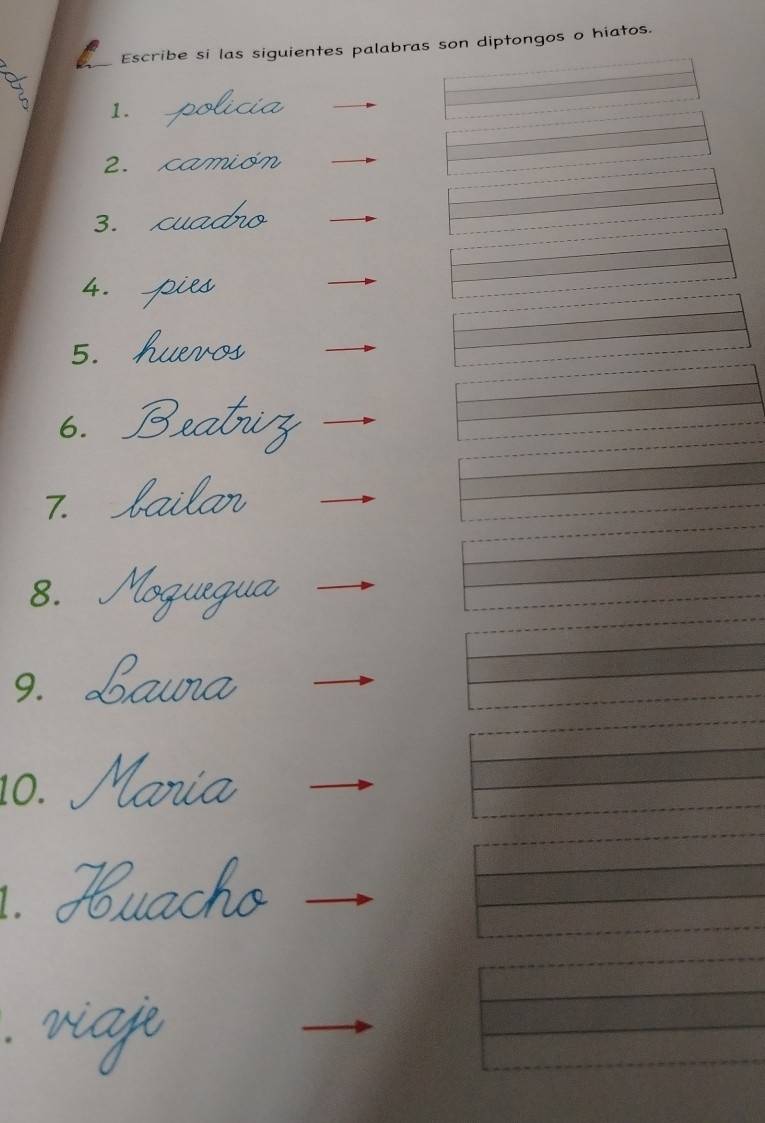 Escribe si las siguientes palabras son diptongos o hiatos.
1. policía
2. camión
3. cuadro
4. pies
5. huevos
6. Beatriz
7. bailar
8. Moquegua
9. Laura
10. María
1. Huacho
. viaje